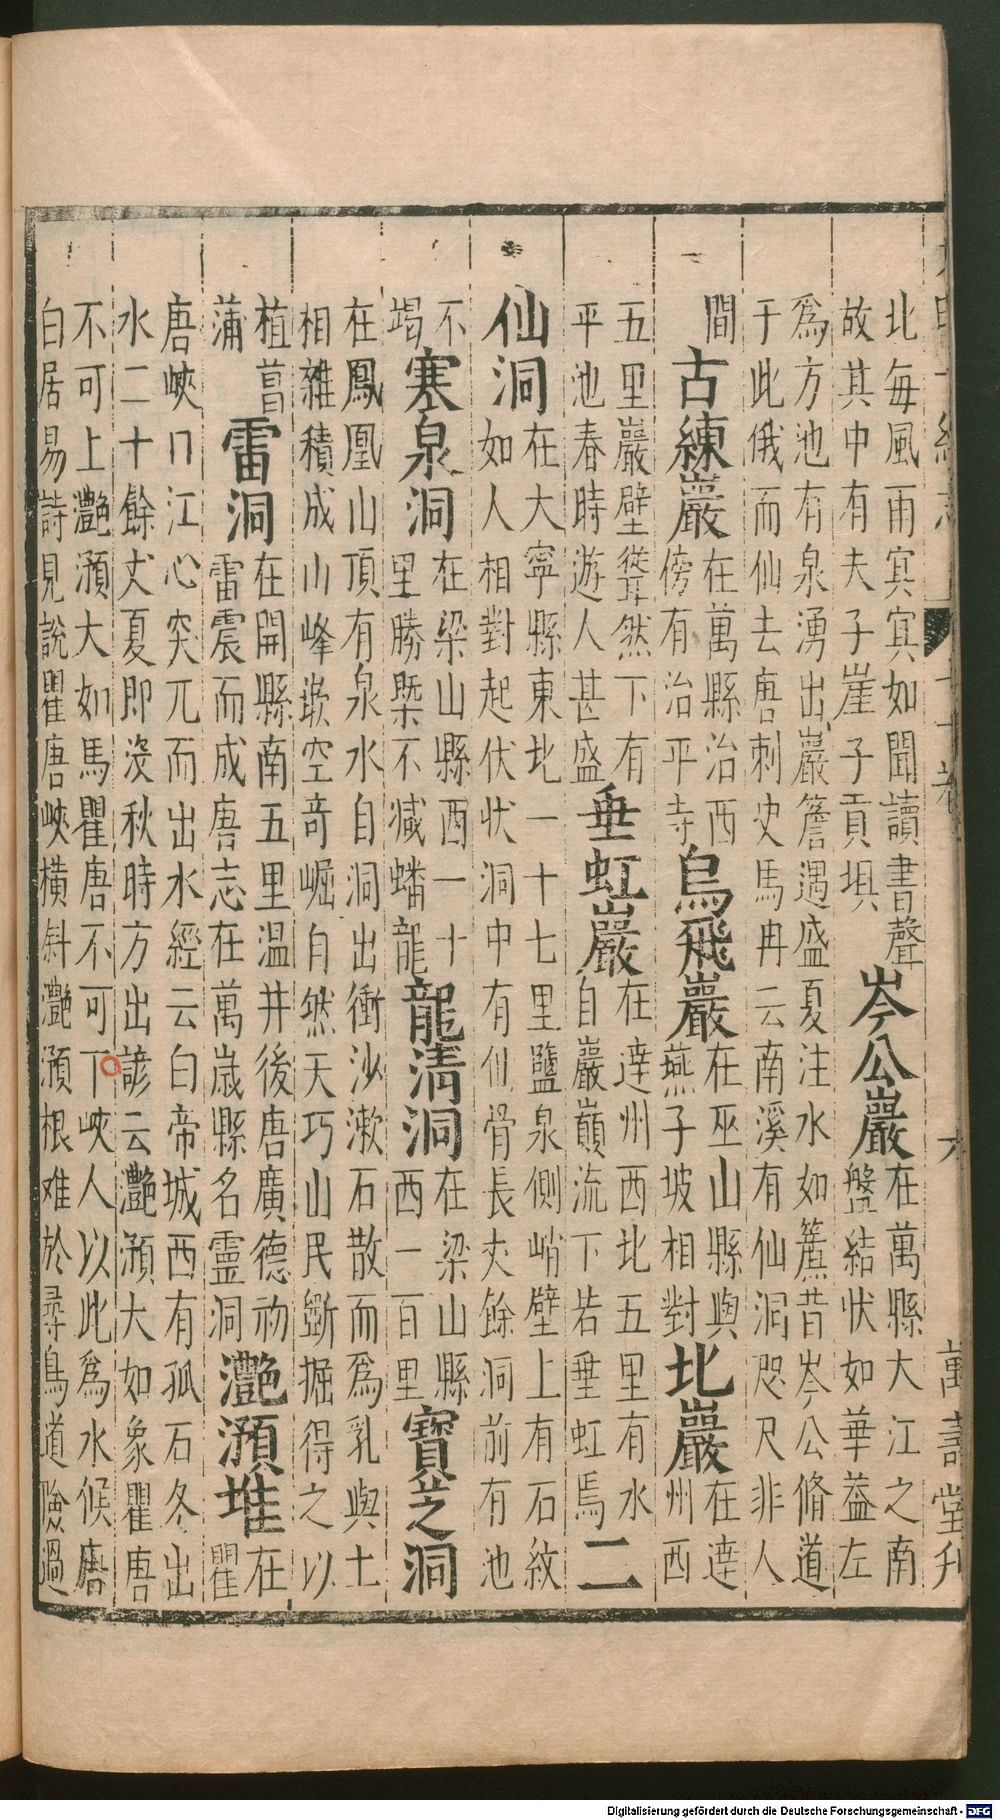 萬壽堂刋
北每風雨㝠㝠如聞讀書聲
故其中有夫子崖子貢垻
岑公巖
在萬縣大江之南
盤結狀如華葢左
爲方池有泉湧出巖簷遇盛夏注水如簾昔岑公脩道
于此俄而仙去唐刺史馬冉云南溪有仙洞咫尺非人
間
古練巖
在萬縣治西
傍有治平寺
烏飛巖
在巫山縣與
燕子坡相對
北巖
在達
州西
五里巖壁聳然下有
平池春時遊人甚盛
垂虹巖
在達州西北五里有水
自巖巔流下若垂虹焉
二
仙洞
在大寧縣東北一十七里鹽泉側峭壁上有石紋
如人相對起伏狀洞中有仙骨長丈餘洞前有池
不
竭
寒泉洞
在梁山縣西一十
里勝槩不減蟠龍
龍清洞
在梁山縣
西一百里
寶芝洞
在鳳凰山頂有泉水自洞出衝沙漱石散而爲乳與土
相雜積成小峰嵌空竒崛自然天巧山民斸掘得之以
植菖
蒲
雷洞
在開縣南五里温井後唐廣德初
雷震而成唐志在萬歳縣名靈洞
灔澦堆
在
瞿
唐峽口江心突兀而出水經云白帝城西有孤石冬出
水二十餘丈夏即沒秋時方出諺云灔澦大如象瞿唐
不可上灔澦大如馬瞿唐不可下峽人以此爲水候唐
白居易詩見說瞿唐峽横斜灔澦根难於尋鳥道險過
Digitalisierung gefördert durch die Deutsche Forschungsgemeinschaft - DFG